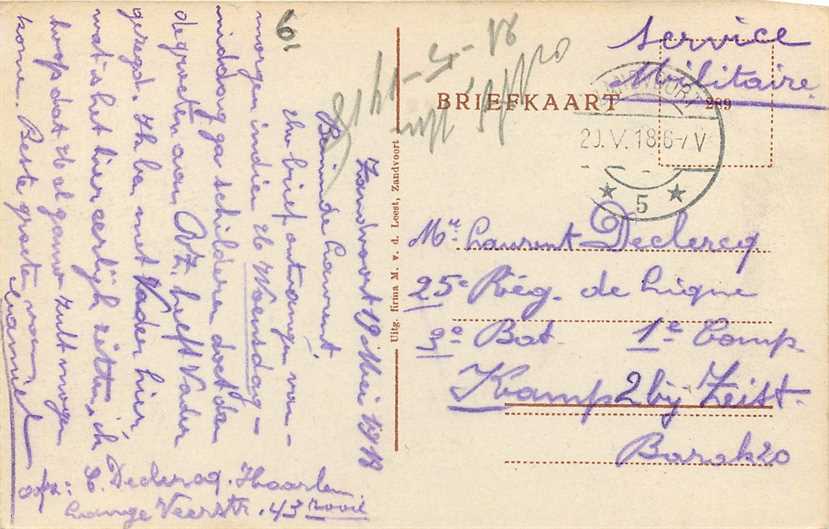 Service
Militaire
BRIEFKAART
289
ZANDVOORT
20.V.18.6-7V
5
Mr. Laurent Declercq
25e Rég. de Ligne
3e Bat. 1e Comp.
Kamp 2 bij Zeist.
Barak 20
Uitg. firma M. v. d. Leest, Zandvoort
6.
Zandvoort 19 Mei 1918
Beminde Laurent,
Uw brief ontvangen van-
morgen indien ik Woensdag-
middag ga schilderen doet dan
de groeten aan heeft Vader
gezegd. Ik ben met Vader hier,
wat is het hier eerlijk zitten, ik
hoop dat ik al gauw zult mogen
kome. Beste groeten van
Camiel
Afz: C. Declercq. Haarlem
Lange Veerstr. 43 rood